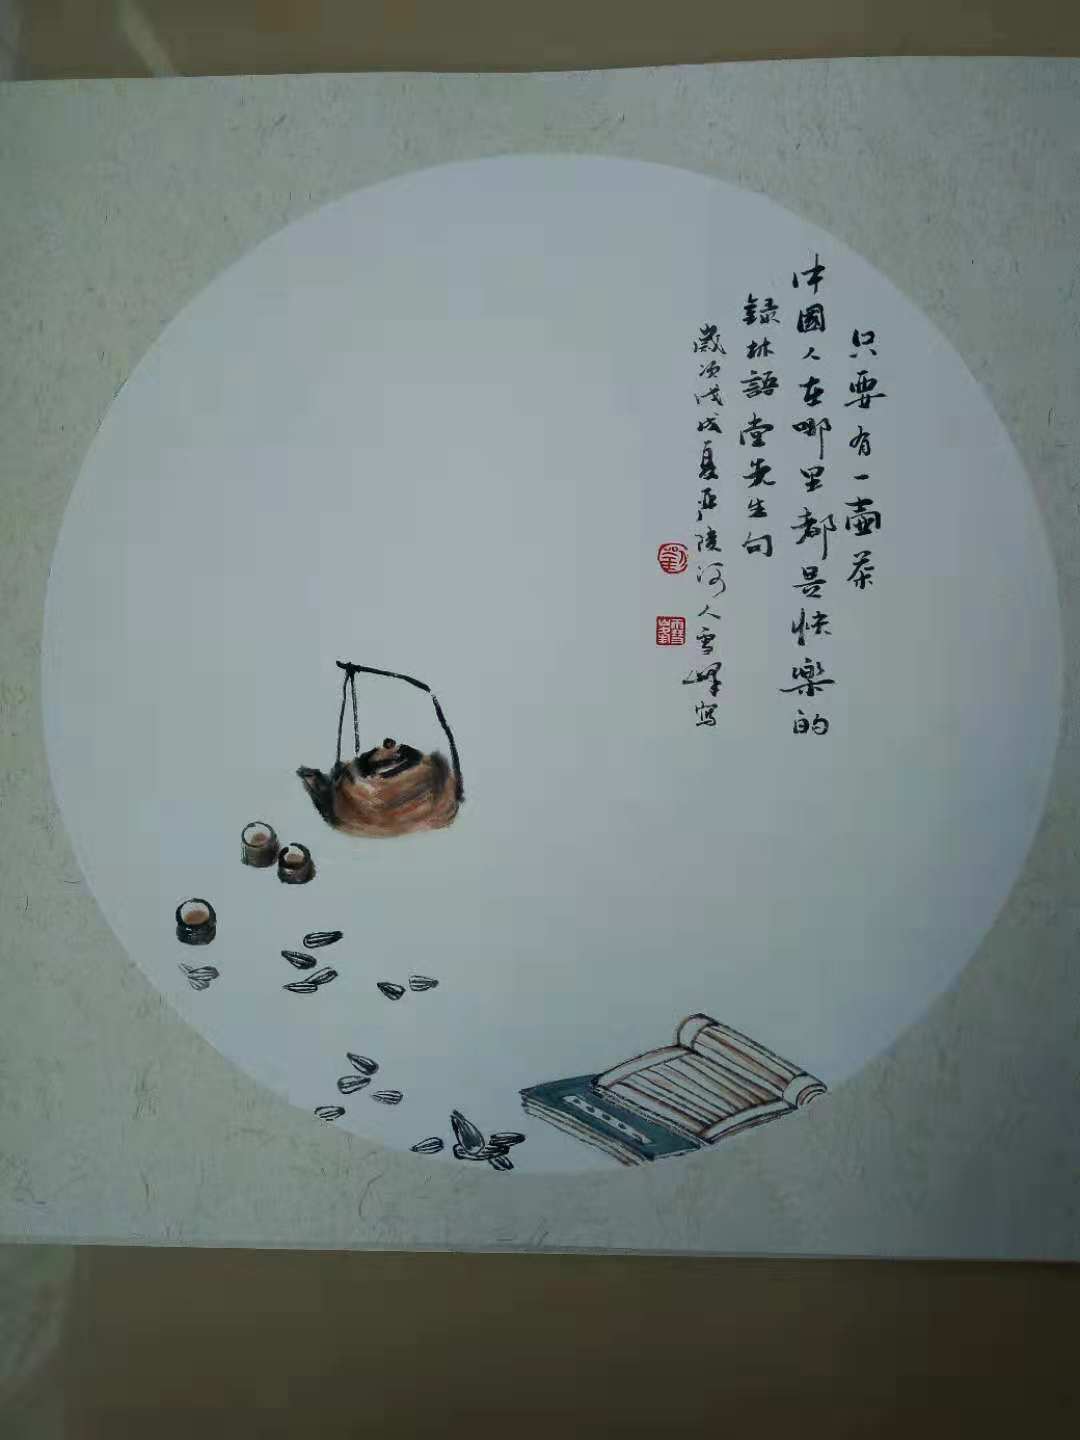 只要有一壺茶
中國人在哪里都是快樂的
録林語堂先生句
歲次戊戌夏严陵河人雪峰寫